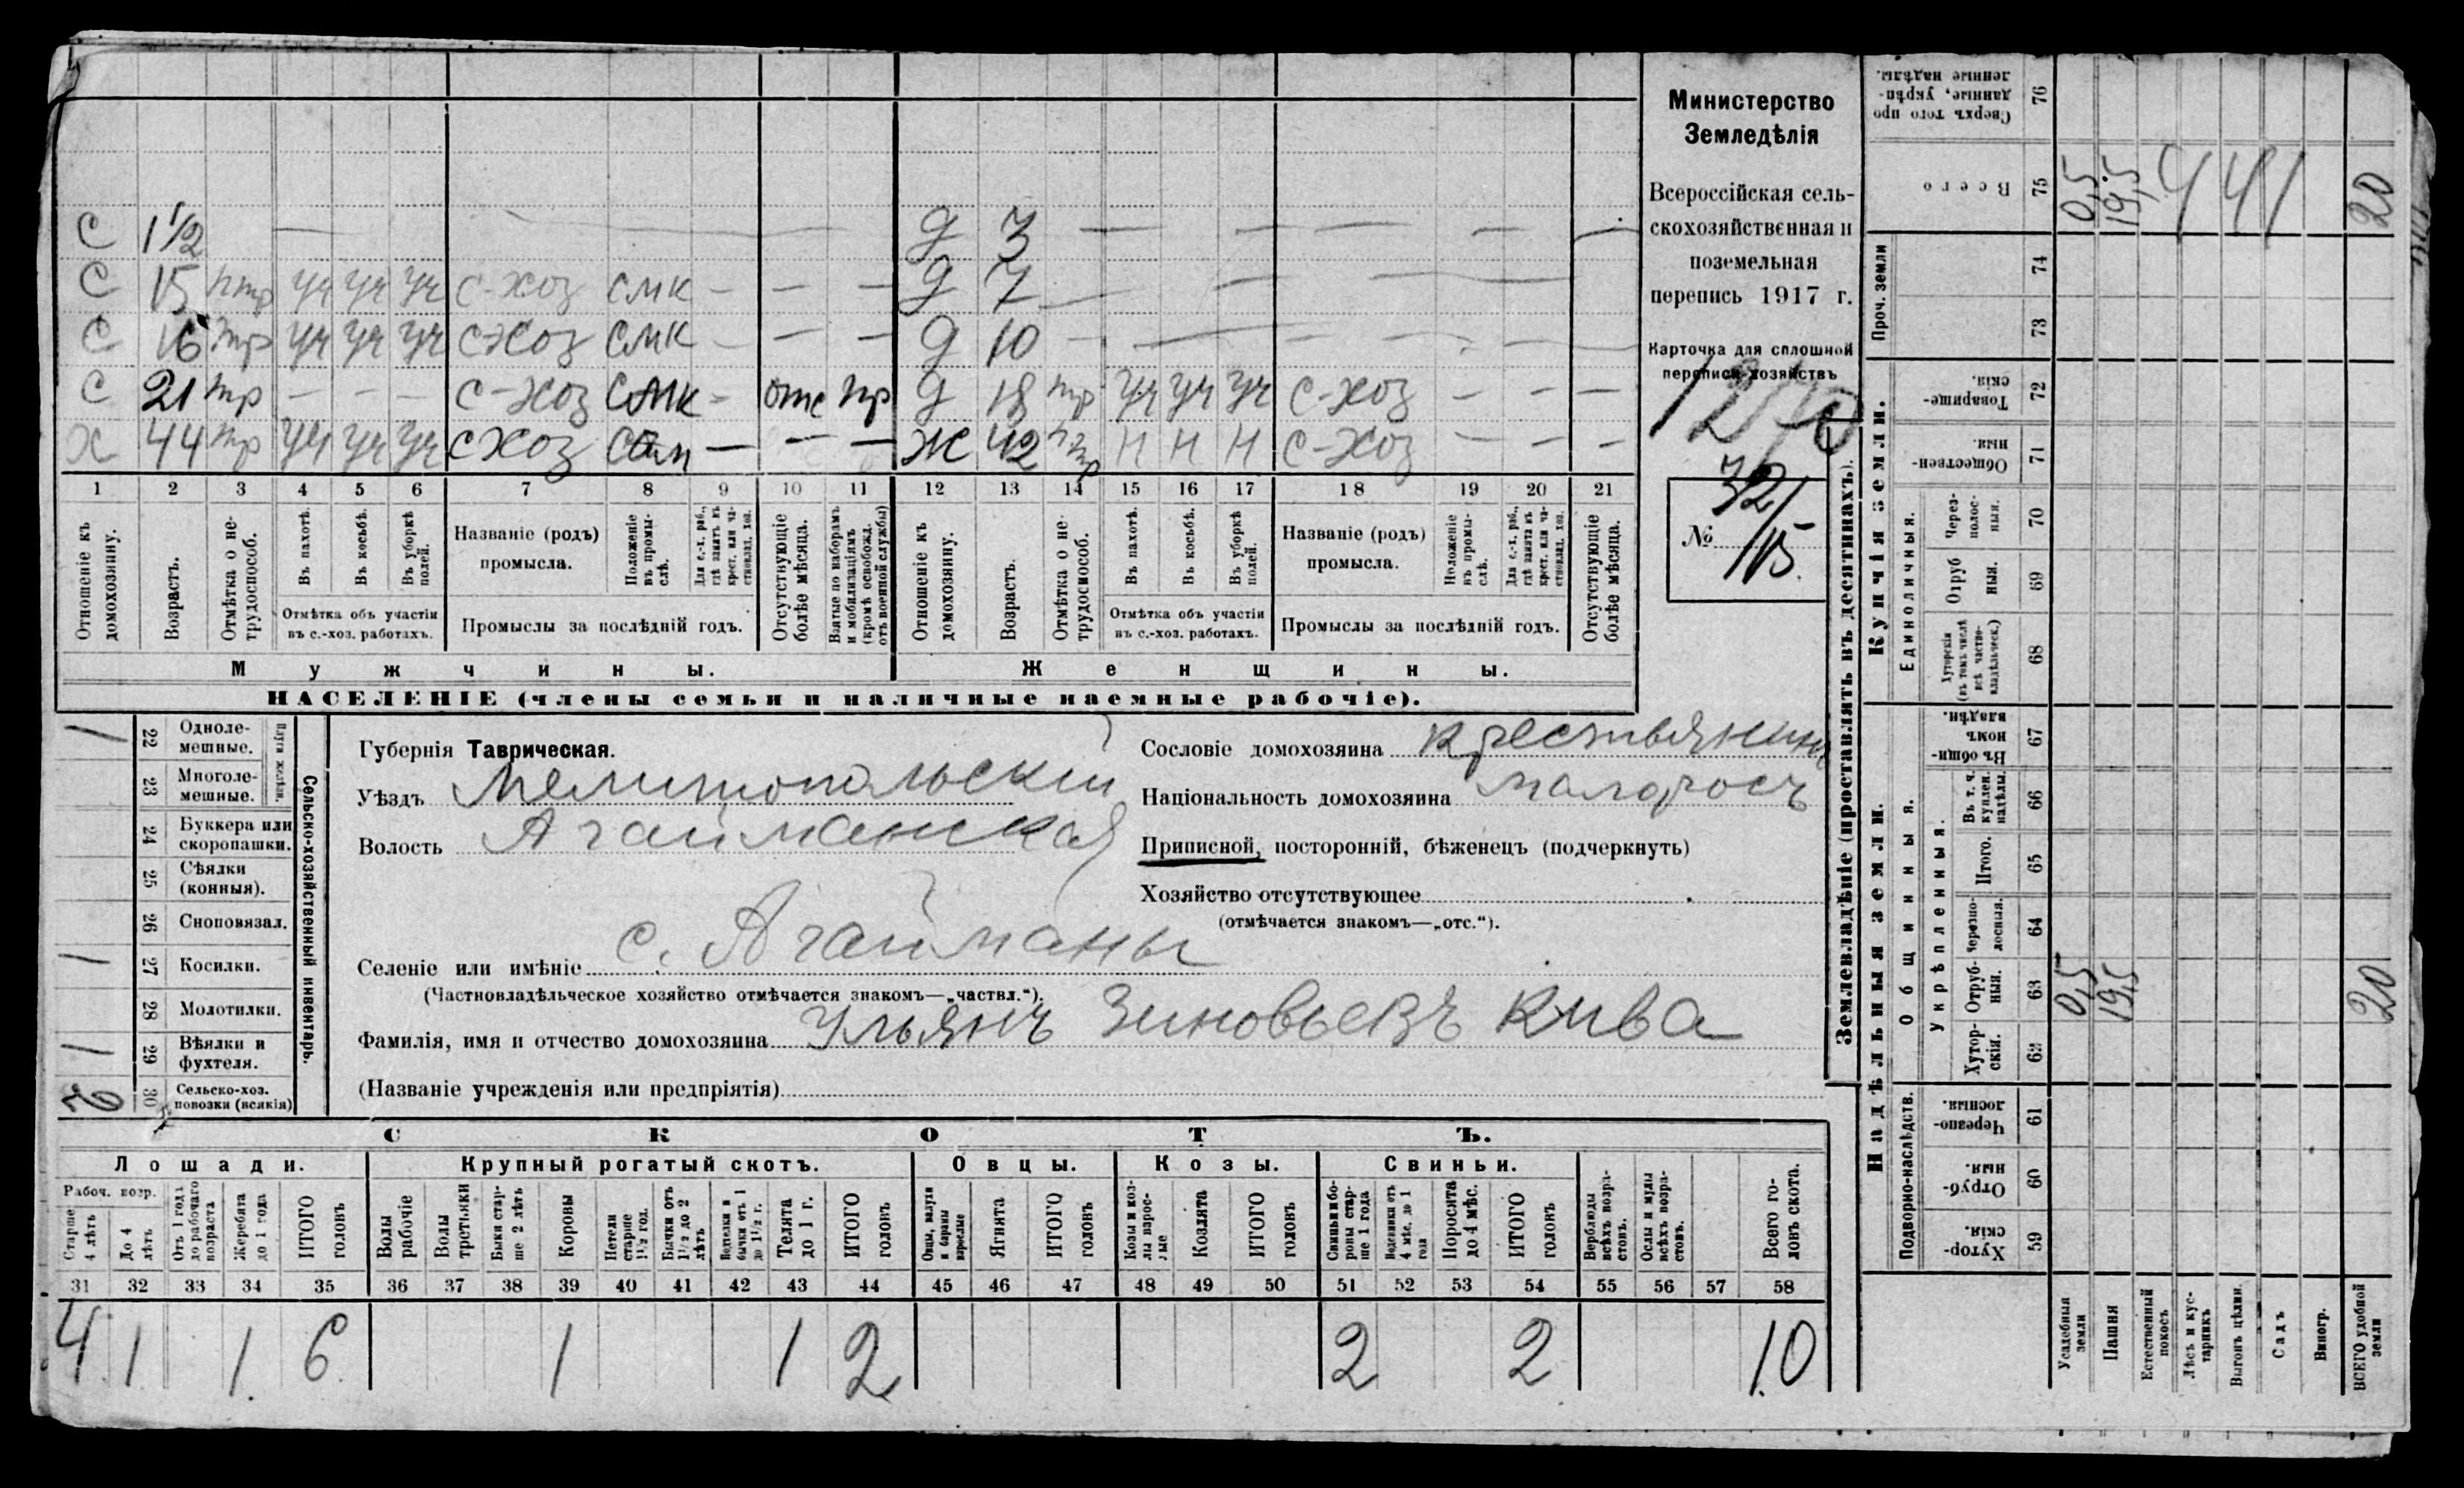 С 1 1/2 — — — Д 3 — — — — —
С 15 птр уч уч уч с-хоз смк — — — Д 7 — — —
С 16 птр уч уч уч с-хоз смк — — — Д 10 — — — — — —
С 21 тр — — — с-хоз смк — отс пр Д 18 тр уч уч уч с-хоз — — —
Х 44 тр уч уч уч с-хоз сам — — — Ж 42 птр н н н с-хоз — — —
1 2 3 4 5 6 7 8 9 10 11 12 13 14 15 16 17 18 19 20 21
Отношеніе къ домохозяину.
Возрастъ.
Отмѣтка о не-трудоспособ.
Въ пахотѣ.
Въ косьбѣ.
Въ уборкѣ полей.
Отмѣтка объ участіи въ с.-хоз. работахъ.
Названіе (родъ) промысла.
Положеніе въ промы-слѣ.
Для с.-х. раб., гдѣ занятъ въ крест. или ча-стновлад. хоз.
Промыслы за послѣдній годъ.
Отсутствующіе болѣе мѣсяца.
Взятые по наборамъ и мобилизаціямъ (кромѣ освобожд. отъ военной службы)
Отношеніе къ домохозяину.
Возрастъ.
Отмѣтка о не-трудоспособ.
Въ пахотѣ.
Въ косьбѣ.
Въ уборкѣ полей.
Отмѣтка объ участіи въ с.-хоз. работахъ.
Названіе (родъ) промысла.
Положеніе въ промы-слѣ.
Для с.-х. раб., гдѣ занята въ крест. или ча-стновлад. хоз.
Промыслы за послѣдній годъ.
Отсутствующіе болѣе мѣсяца.
Мужчины.
Женщины.
НАСЕЛЕНІЕ (члены семьи и наличные наемные рабочіе).
Министерство
Земледѣлія
Всероссійская сель-
скохозяйственная и
поземельная
перепись 1917 г.
Карточка для сплошной
переписи хозяйствъ
№ 32/115.
Сельско-хозяйственный инвентарь.
Плуги желѣзн.
/ 22 Одноле-мешные.
23 Многоле-мешные.
24 Буккера или скоропашки.
25 Сѣялки (конныя).
26 Сноповязал.
/ 27 Косилки.
28 Молотилки.
/ 29 Вѣялки и фухтеля.
2 30 Сельско-хоз. повозки (всякія)
Губернія Таврическая.
Уѣздъ Мелитопольскій
Волость Агайманская
Селеніе или имѣніе с. Агайманы
(Частновладѣльческое хозяйство отмѣчается знакомъ—„частвл.“).
Фамилія, имя и отчество домохозяина Ульянъ Зиновьевъ Кива
(Названіе учрежденія или предпріятія)
Сословіе домохозяина крестьянинъ
Національность домохозяина малоросъ
Приписной, посторонній, бѣженецъ (подчеркнуть)
Хозяйство отсутствующее
(отмѣчается знакомъ—„отс.“).
СКОТЪ.
Лошади. Крупный рогатый скотъ. Овцы. Козы. Свиньи.
Рабоч. возр.
Старше 4 лѣтъ
До 4 лѣтъ
Отъ 1 года до рабочаго возраста
Жеребята до 1 года
ИТОГО головъ
Волы рабочіе
Волы третьяки
Быки стар-ше 2 лѣтъ
Коровы
Нетели старше 1½ год.
Бычки отъ 1½ до 2 лѣтъ
Водтелки и бычки отъ 1 до 1½ г.
Телята до 1 г.
ИТОГО головъ
Овцы, валухи и бараны взрослые
Ягнята
ИТОГО головъ
Козы и коз-лы взрос-лые
Козлята
ИТОГО головъ
Свиньи и бо-ровы стар-ше 1 года
Подсвинки отъ 4 мѣс. до 1 года
Поросята до 4 мѣс.
ИТОГО головъ
Верблюды всѣхъ возра-стовъ.
Ослы и мулы всѣхъ возра-стовъ.
Всего го-ловъ скота.
31 32 33 34 35 36 37 38 39 40 41 42 43 44 45 46 47 48 49 50 51 52 53 54 55 56 57 58
4 1 1 6 1 1 2 2 2 10
Землевладѣніе (проставлять въ десятинахъ).
Сверхъ того про данные, укрѣп-ленные надѣлы. 76
Всего 75 0,5 19,5 20
Проч. земли 74 73
Купчія земли.
Товарище-скія. 72
Обществен-ныя. 71
Единоличныя.
Через-полос-ныя. 70
Отруб ныя. 69
Хуторскія (въ томъ числѣ всѣ частно-владѣльческ.) 68
Надѣльныя земли.
Общинныя.
Въ общи-номъ владѣн. 67
Укрѣпленныя.
Въ т. ч. куплен. надѣлы. 66
Итого. 65
Черезпо-лосныя. 64
Отруб-ныя. 63 0,5 19,5 20
Хутор-скія. 62
Подворно-наслѣдств.
Черезпо-лосныя. 61
Отруб-ныя. 60
Хутор-скія. 59
Усадебныя земли
Пашня
Естественный покосъ
Лѣсъ и кус-тарникъ
Выгонъ цѣлин.
Садъ
Виногр.
ВСЕГО удобной земли